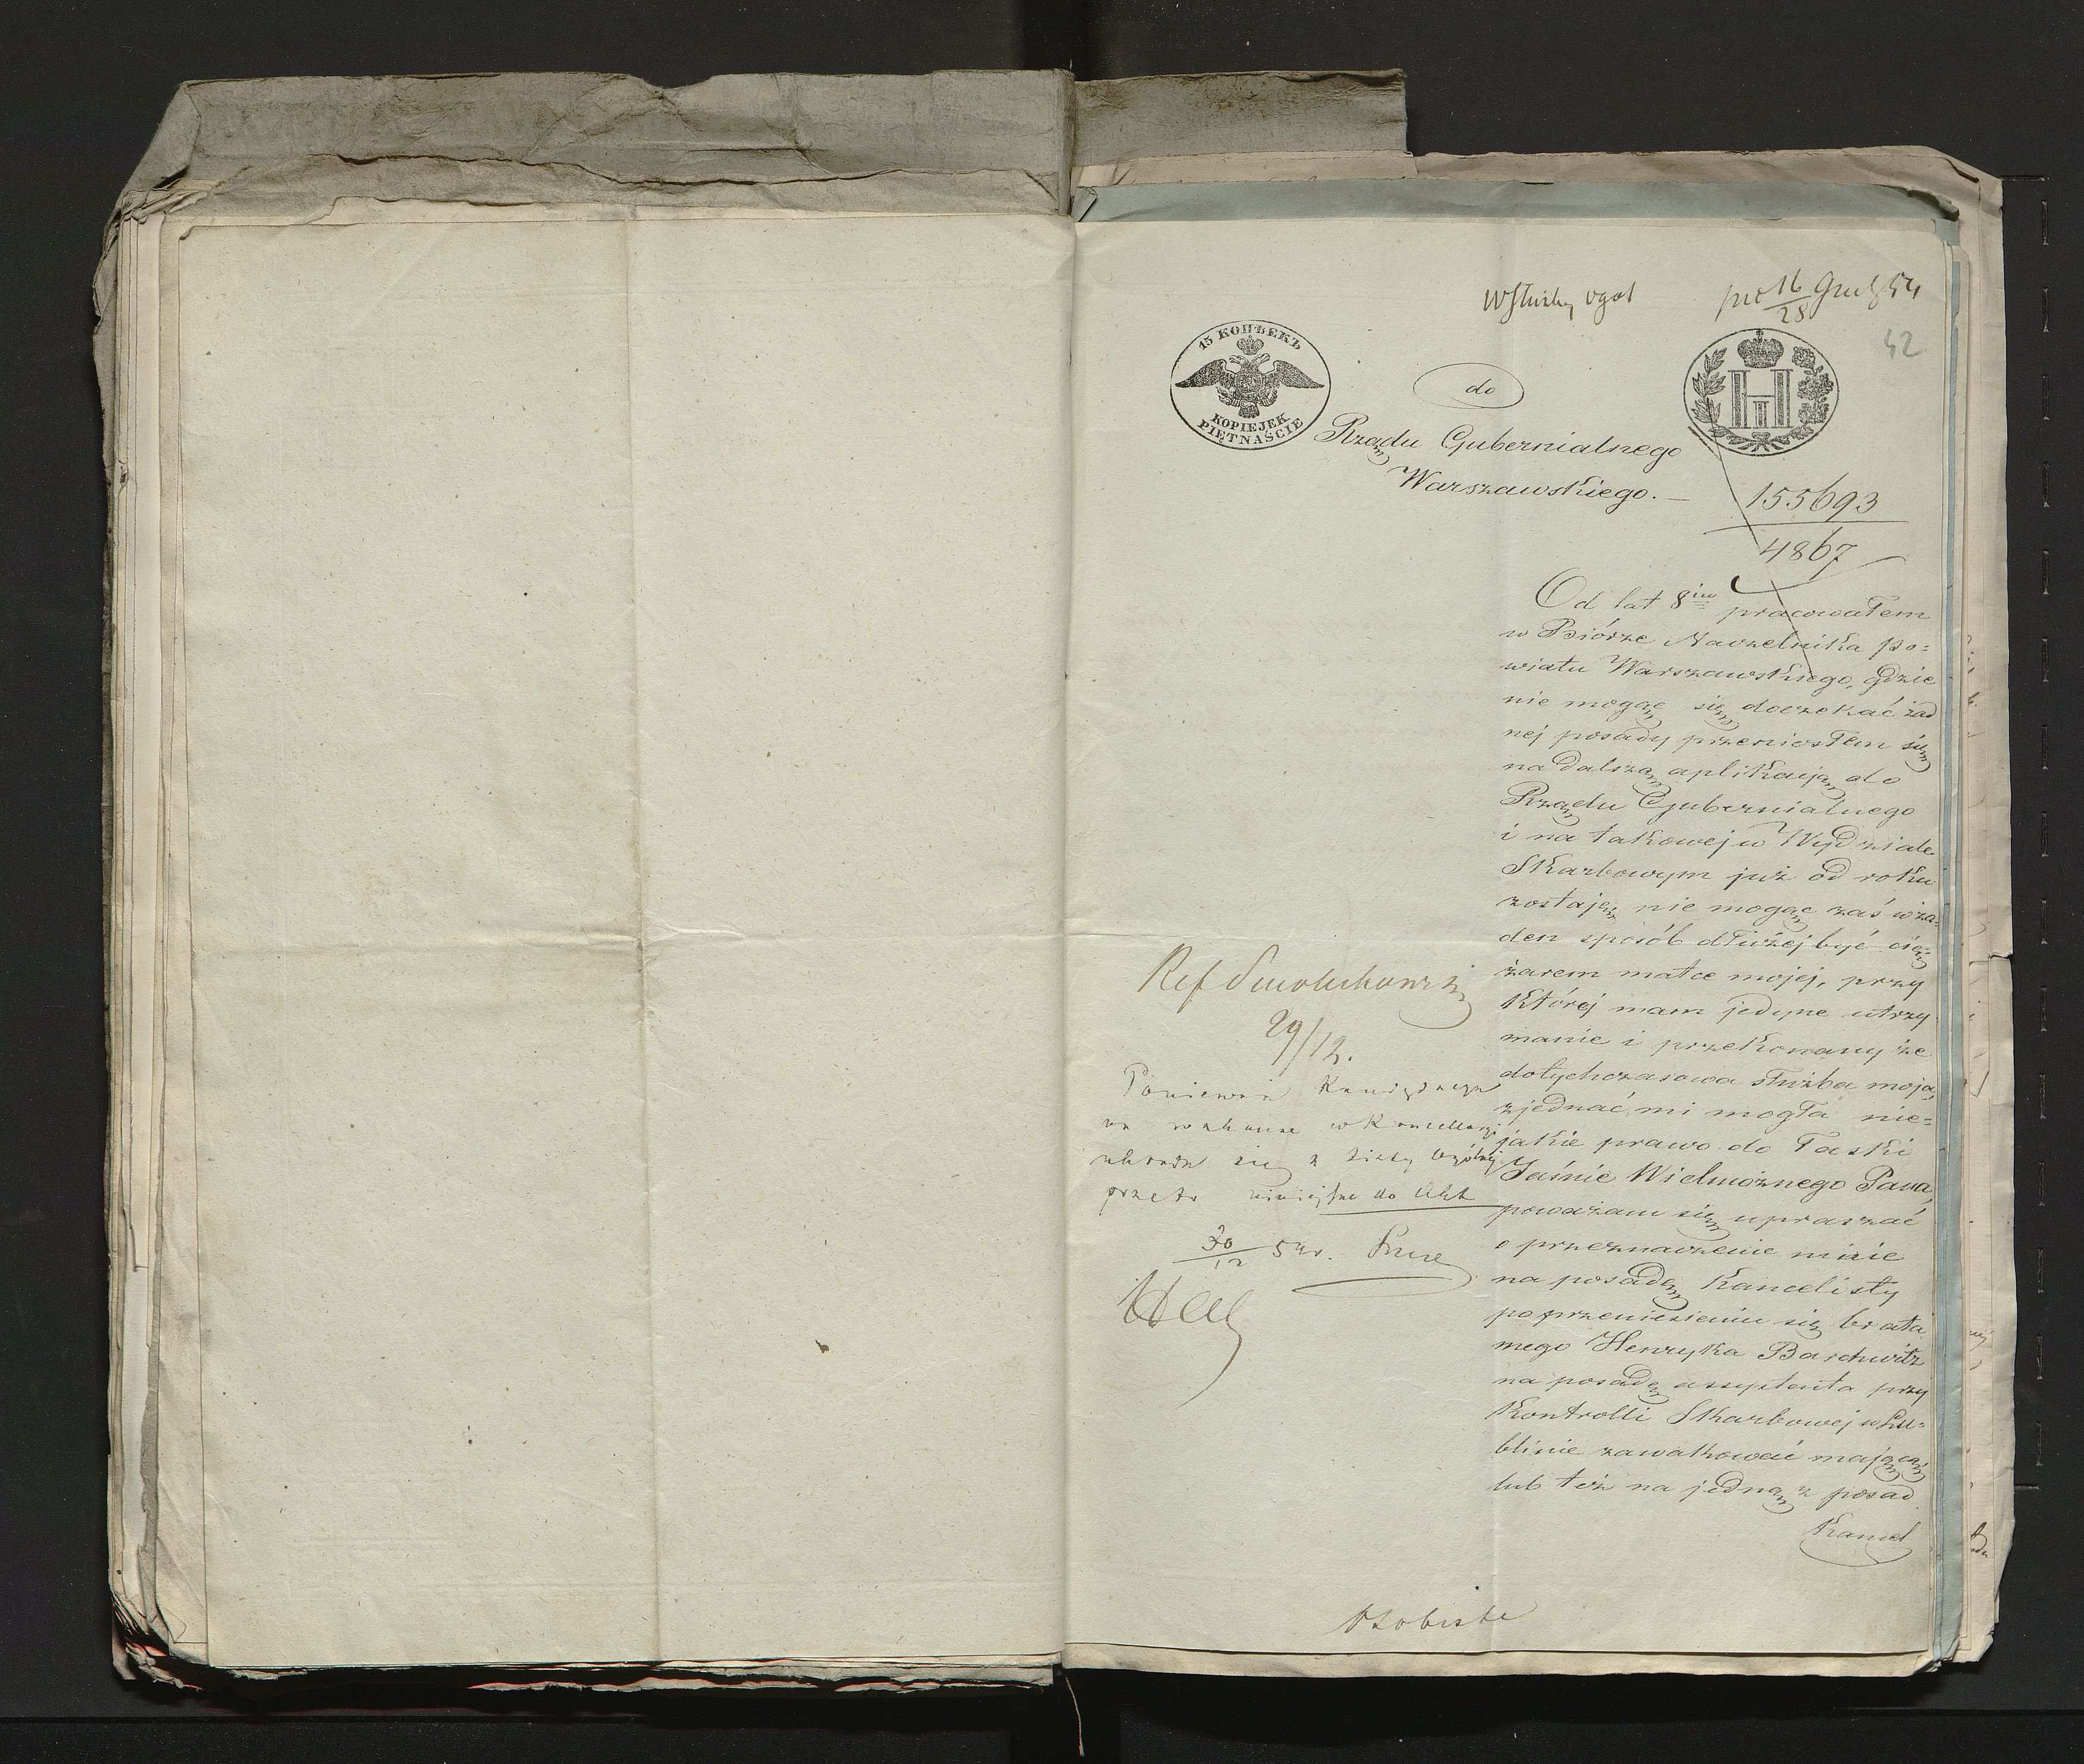 W Służby Ogól
pr 16/28 Grud 54
42
15 КОПѢЕКЪ
KOPIEJEK
PIĘTNAŚCIE
do
Rządu Gubernialnego
Warszawskiego. —
155693
4867
Od lat 8iu pracowałem
w Biórze Naczelnika Po=
wiatu Warszawskiego, gdzie
nie mogąc się doczekać żad
nej posady przeniosłem się
na dalszą aplikacją do
Rządu Gubernialnego
i na takowej w Wydziale
Skarbowym już od roku
zostaję, nie mogąc zaś w ża=
den sposób dłużej być cię=
żarem matce mojej, przy
której mam jedyne utrzy
manie i przekonany że
dotychczasowa służba moja,
zjednać mi mogła nie=
jakie prawo do Łaski
Jaśnie Wielmożnego Pana,
poważam się upraszać
o przeznaczenie mnie
na posadę Kancellisty
po przeniesieniu się brata
mego Henryka Barchwitz
na posadę assystenta przy
Kontrolli Skarbowej w Lu=
blinie zawakować mającą,
lub też na jedną z posad
Kancel
Ref Smoluchowski
29/12.
Ponieważ
na wakanse w Kancellaryi
układa się z Służby Ogólnej
przeto niniejsze do Akt
30/12 54 r.
Osobiste